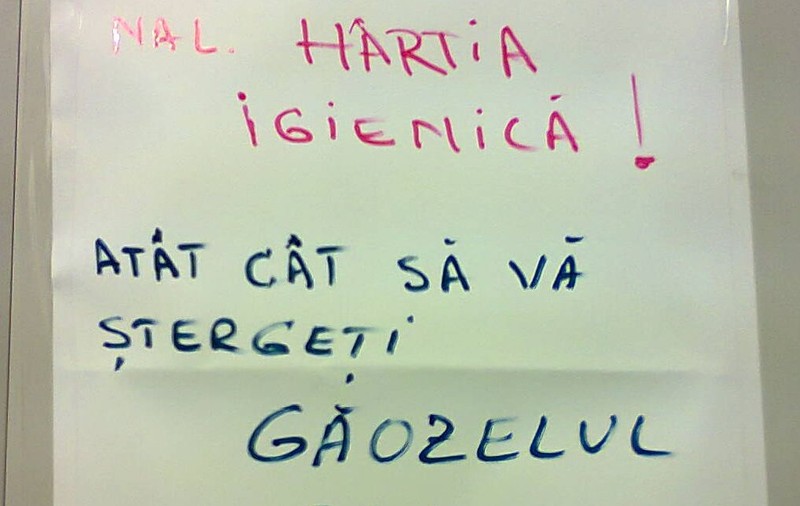 NAL. HÂRTIA
IGIENICĂ!
ATÂT CÂT SĂ VĂ
ȘTERGEȚI
GĂOZELUL